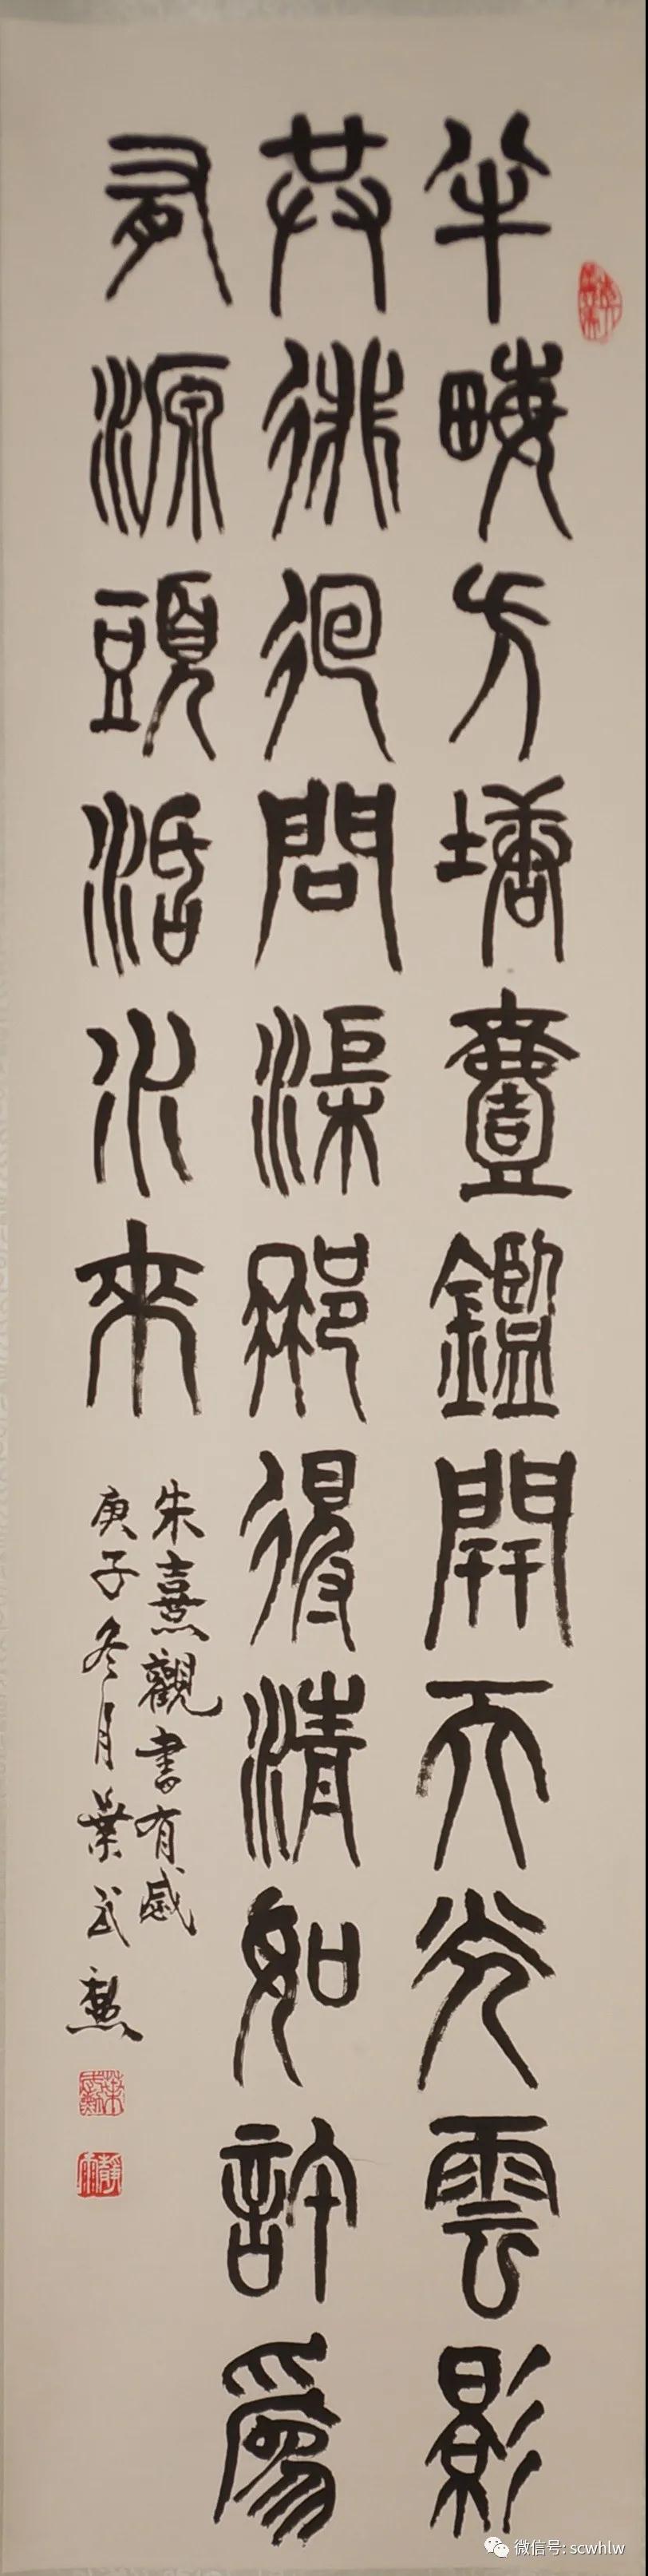 半畝方塘壹鑑開天光雲影
共徘徊問渠那得清如許爲
有源頭活水來
朱熹觀書有感
庚子冬月葉武勳
葉武勳
微信号: scwhlw